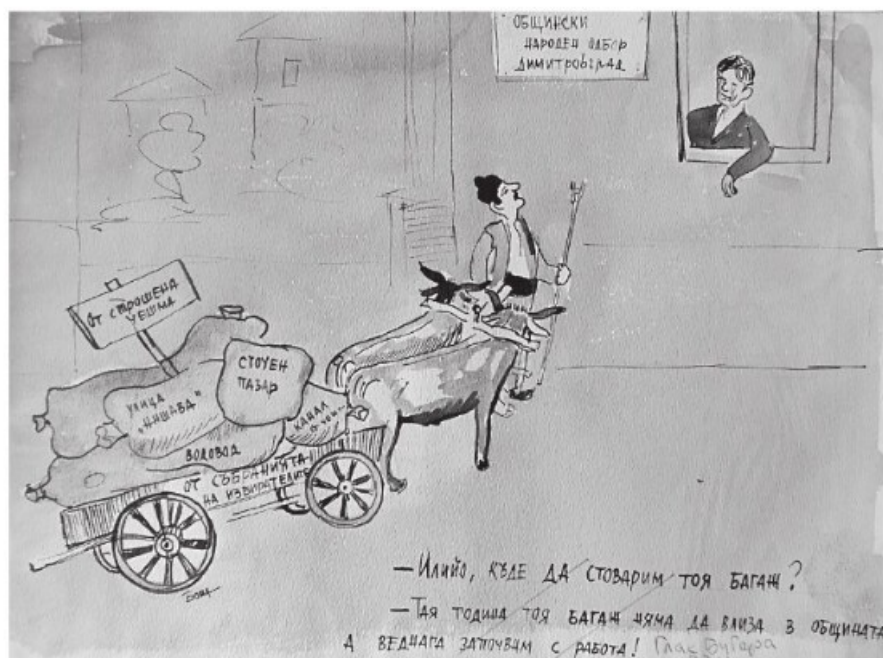 ОБЩИНСКИ
НАРОДЕН ОДБОР
ДИМИТРОВГРАД
ОТ СТРОШЕНА
ЧЕШМА
СТОЧЕН
ПАЗАР
УЛИЦА
"НИШАВА"
КАНАЛ
ВОДОВОД
ОТ СЪБРАНИЯТА
НА ИЗБИРАТЕЛИТЕ
— Илийо, КЪДЕ ДА СТОВАРИМ ТОЯ БАГАЖ?
— ТАЯ ГОДИНА ТОЯ БАГАЖ НЯМА ДА ВЛИЗА В ОБЩИНАТА
А ВЕДНАГА ЗАПОЧВАМ С РАБОТА! Глас Бугара